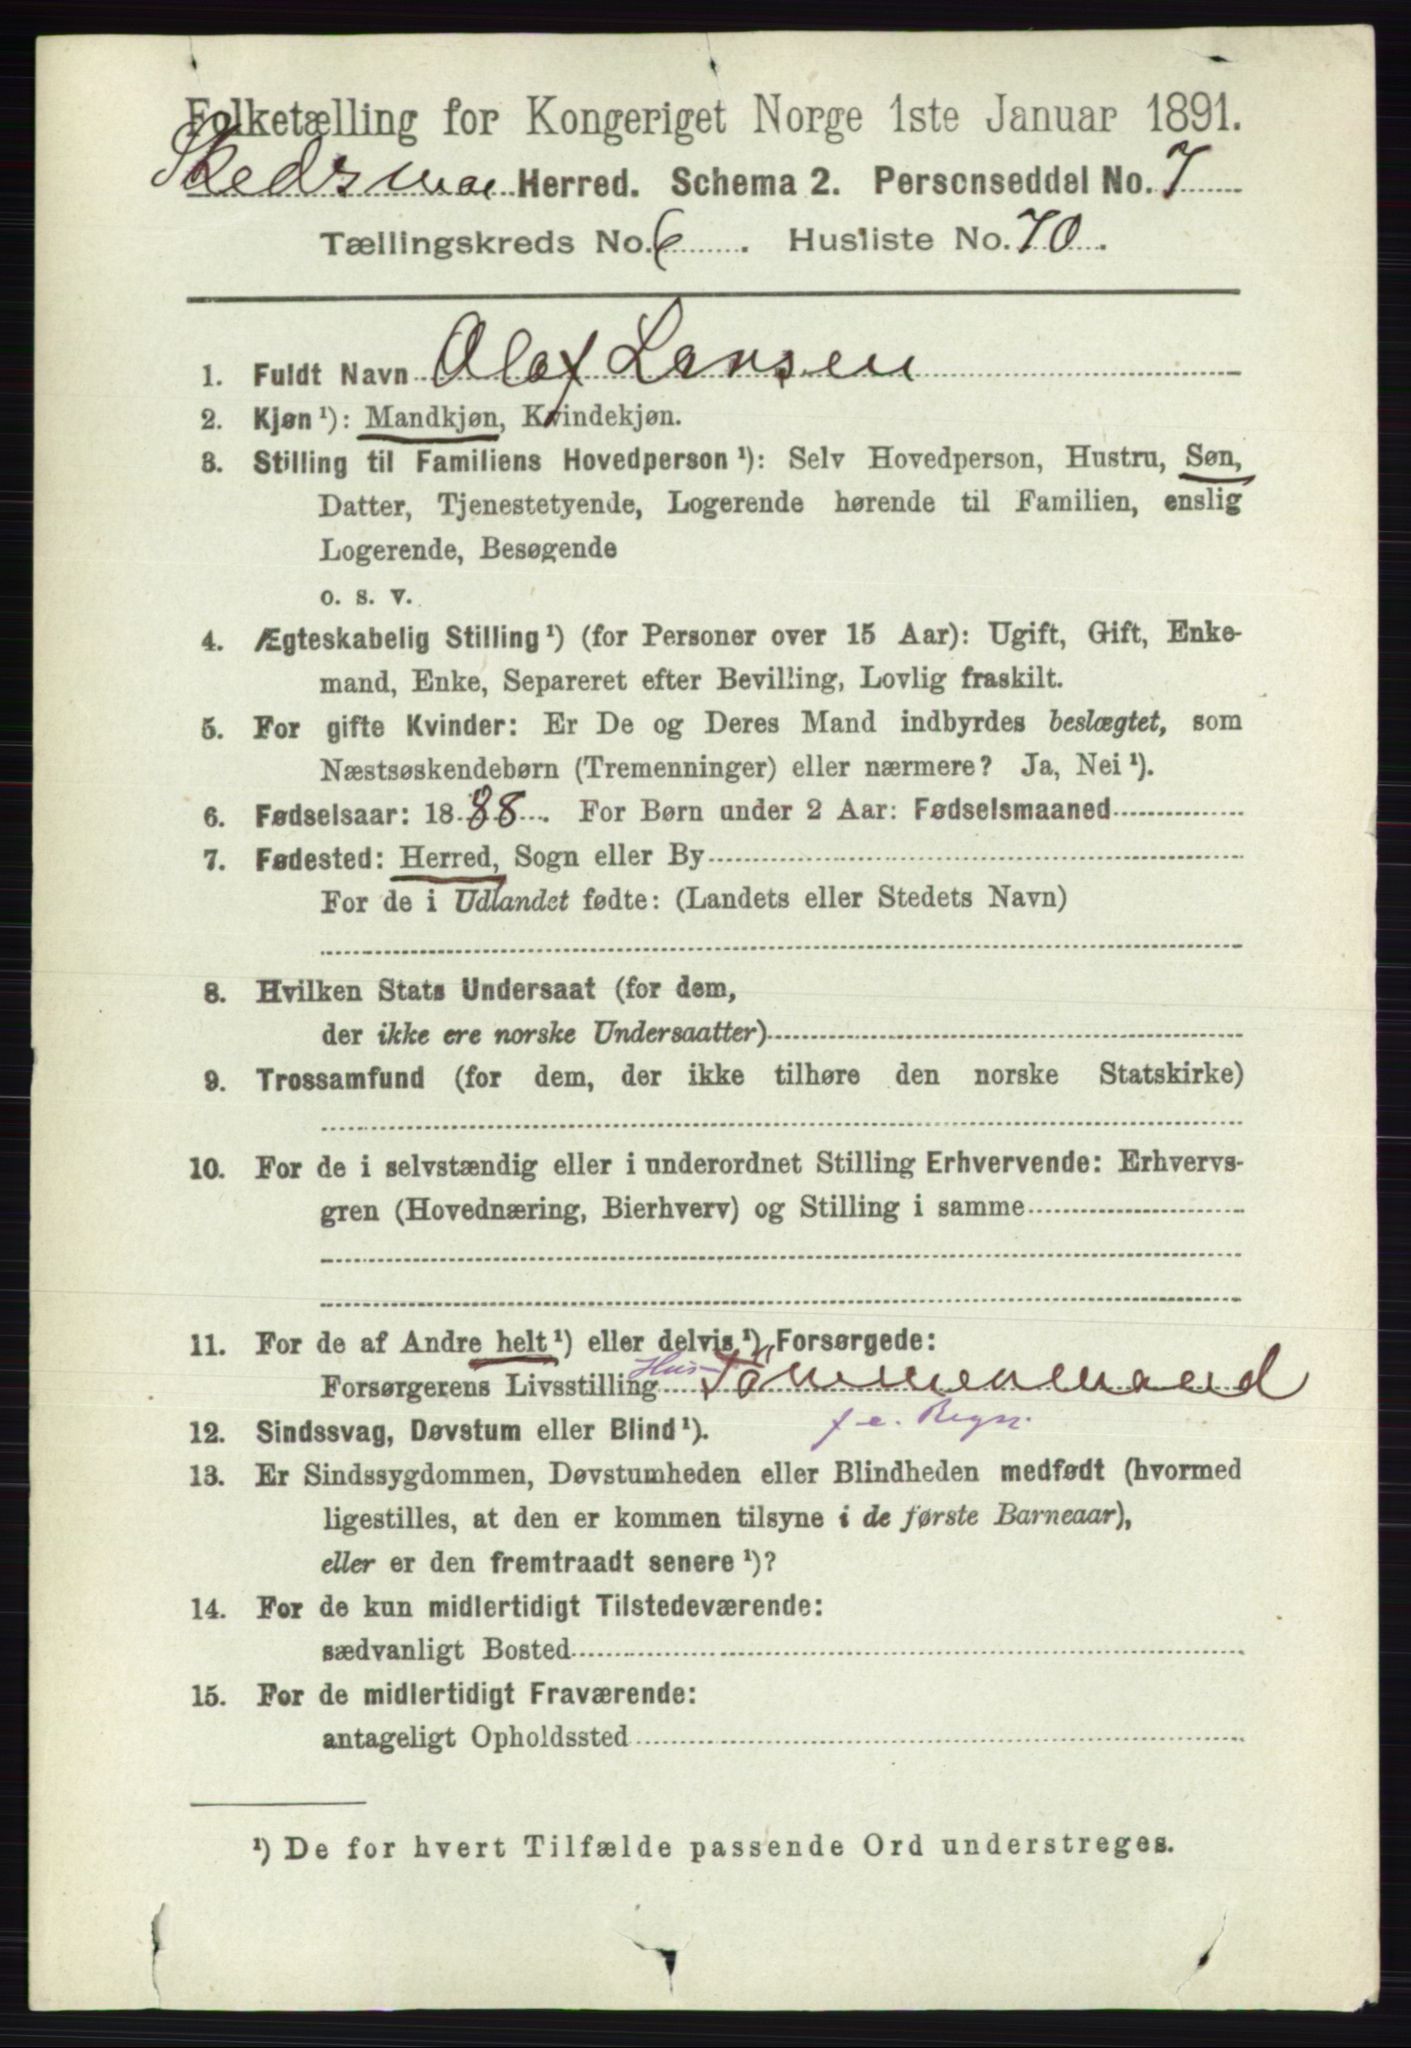 Folketælling for Kongeriget Norge 1ste Januar 1891.
Skedsmoe Herred. Schema 2. Personseddel No. 7
Tællingskreds No. 6. Husliste No. 70.
1. Fuldt Navn Olaf Larsen
2. Kjøn ¹): Mandkjøn, Kvindekjøn.
3. Stilling til Familiens Hovedperson ¹): Selv Hovedperson, Hustru, Søn,
Datter, Tjenestetyende, Logerende hørende til Familien, enslig
Logerende, Besøgende
o. s. v.
4. Ægteskabelig Stilling ¹) (for Personer over 15 Aar): Ugift, Gift, Enke-
mand, Enke, Separeret efter Bevilling, Lovlig fraskilt.
5. For gifte Kvinder: Er De og Deres Mand indbyrdes beslægtet, som
Næstsøskendebørn (Tremenninger) eller nærmere? Ja, Nei ¹).
6. Fødselsaar: 1888. For Børn under 2 Aar: Fødselsmaaned
7. Fødested: Herred, Sogn eller By
For de i Udlandet fødte: (Landets eller Stedets Navn)
8. Hvilken Stats Undersaat (for dem,
der ikke ere norske Undersaatter)
9. Trossamfund (for dem, der ikke tilhøre den norske Statskirke)
10. For de i selvstændig eller i underordnet Stilling Erhvervende: Erhvervs-
gren (Hovednæring, Bierhverv) og Stilling i samme
11. For de af Andre helt ¹) eller delvis ¹) Forsørgede:
Forsørgerens Livsstilling Hus- Tömmermand
12. Sindssvag, Døvstum eller Blind ¹). f. e. Regn.
13. Er Sindssygdommen, Døvstumheden eller Blindheden medfødt (hvormed
ligestilles, at den er kommen tilsyne i de første Barneaar),
eller er den fremtraadt senere ¹)?
14. For de kun midlertidigt Tilstedeværende:
sædvanligt Bosted
15. For de midlertidigt Fraværende:
antageligt Opholdssted
¹) De for hvert Tilfælde passende Ord understreges.